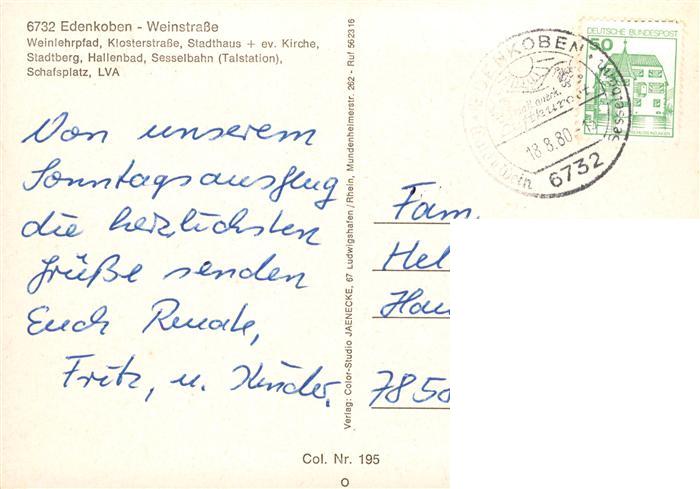 6732 Edenkoben - Weinstraße
Weinlehrpfad, Klosterstraße, Stadthaus + ev. Kirche,
Stadtberg, Hallenbad, Sesselbahn (Talstation),
Schafsplatz, LVA
Von unserem
Sonntagsausflug
die herzlichsten
Grüße senden
Euch Renate,
Fritz, u. Kinder.
Verlag: Color-Studio JAENECKE, 67 Ludwigshafen / Rhein, Mundenheimerstr. 262 - Ruf 562316
EDENKOBEN
Sesselbahn
18.8.80
6732
50
DEUTSCHE BUNDESPOST
Fam.
Hel
Hau
7850
Col. Nr. 195
O